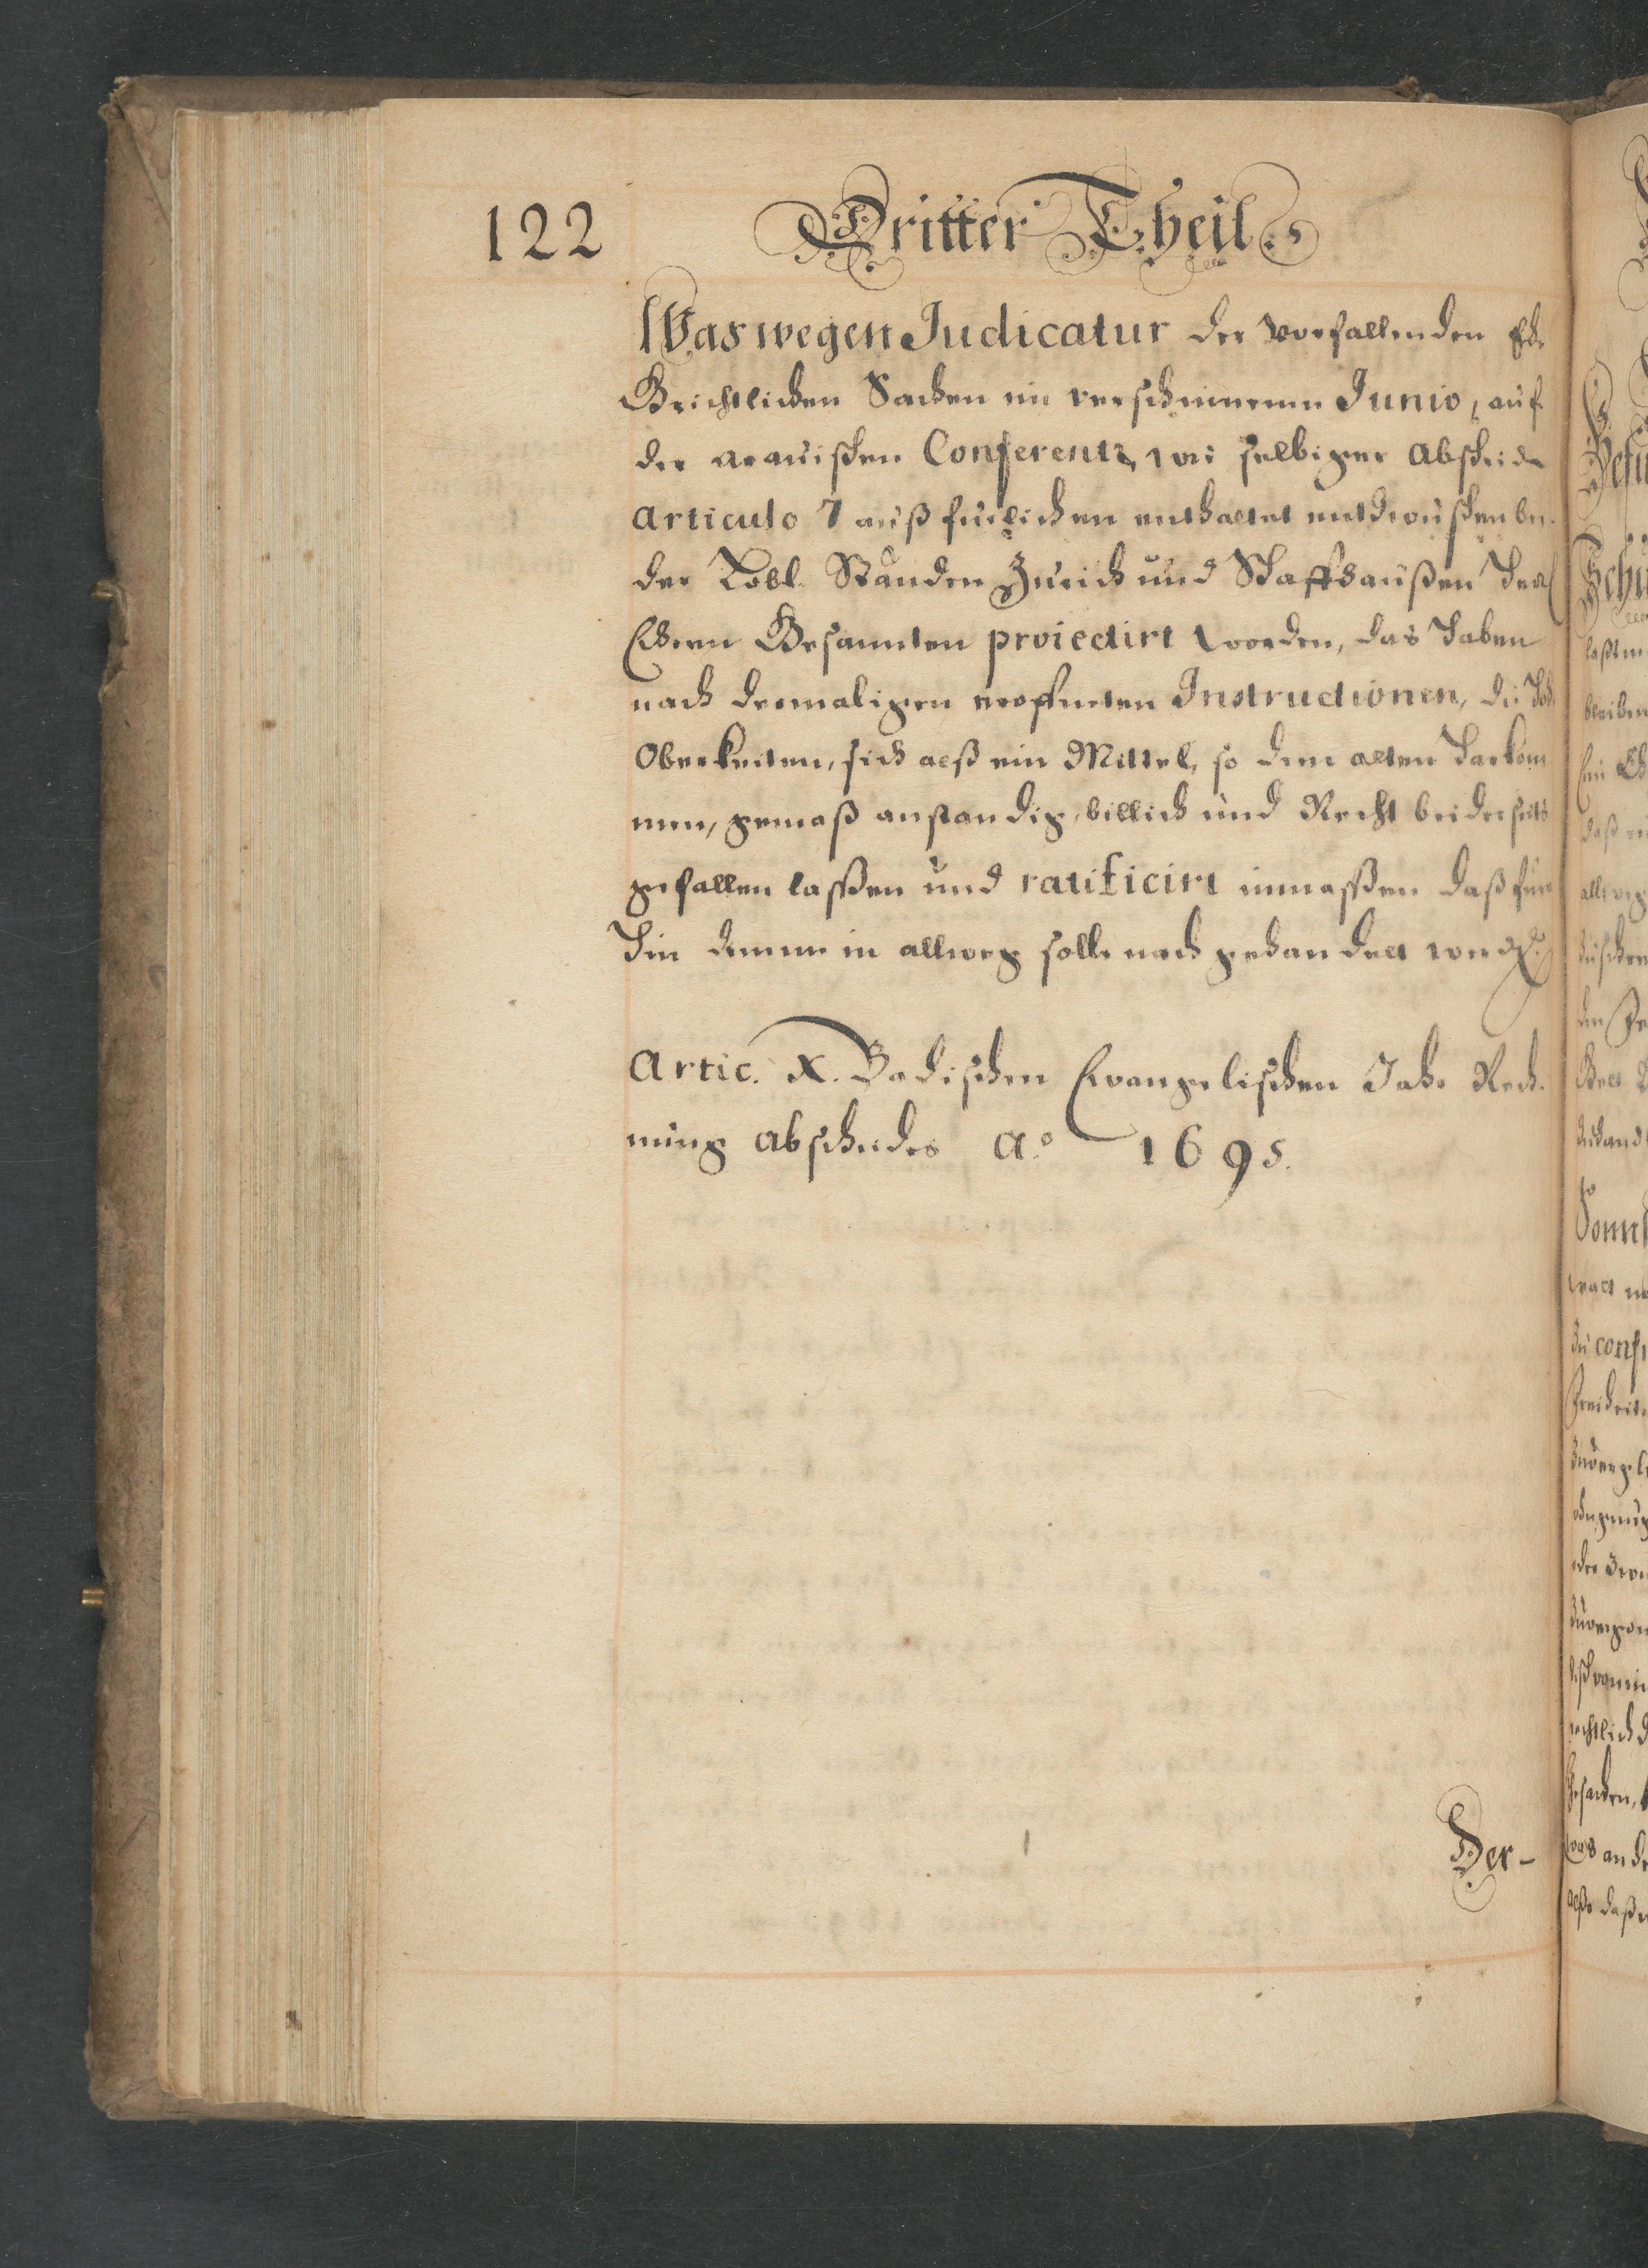 122 Dritter Theil.
Was wegen Judicatur der vorfallenden Ehe
Grichtlichen Sachen im verschinnenen Junio, auf
der arauischen Conferentz, wie selbiger Abscheid
Articulo 7 außfurlichen enthaltet entzwüschen bey
der Lobl. Ständen Zurich und Schaffhaußen Herren
Ehren Gesannten proiectirt worden, das haben
nach dermaligen eroffneten Instructionen, die Hoh.
Oberkeiten, sich alß ein Mittel, so dem alten Harkom
men, gemäß anstandig, billich und Recht beiderseits
gefallen lassen und ratificirt inmassen daß für
hin demme in allweg solle nach gehandlet werden.
Artic. X. Badischen Evangelischen Jahr Rech-
nung Abscheides Aº 1695.
Der-